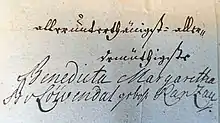 allerunterthänigst-aller-
demüthigste
Benedicta Margaretha
v Löwendal gebohr Ranzau